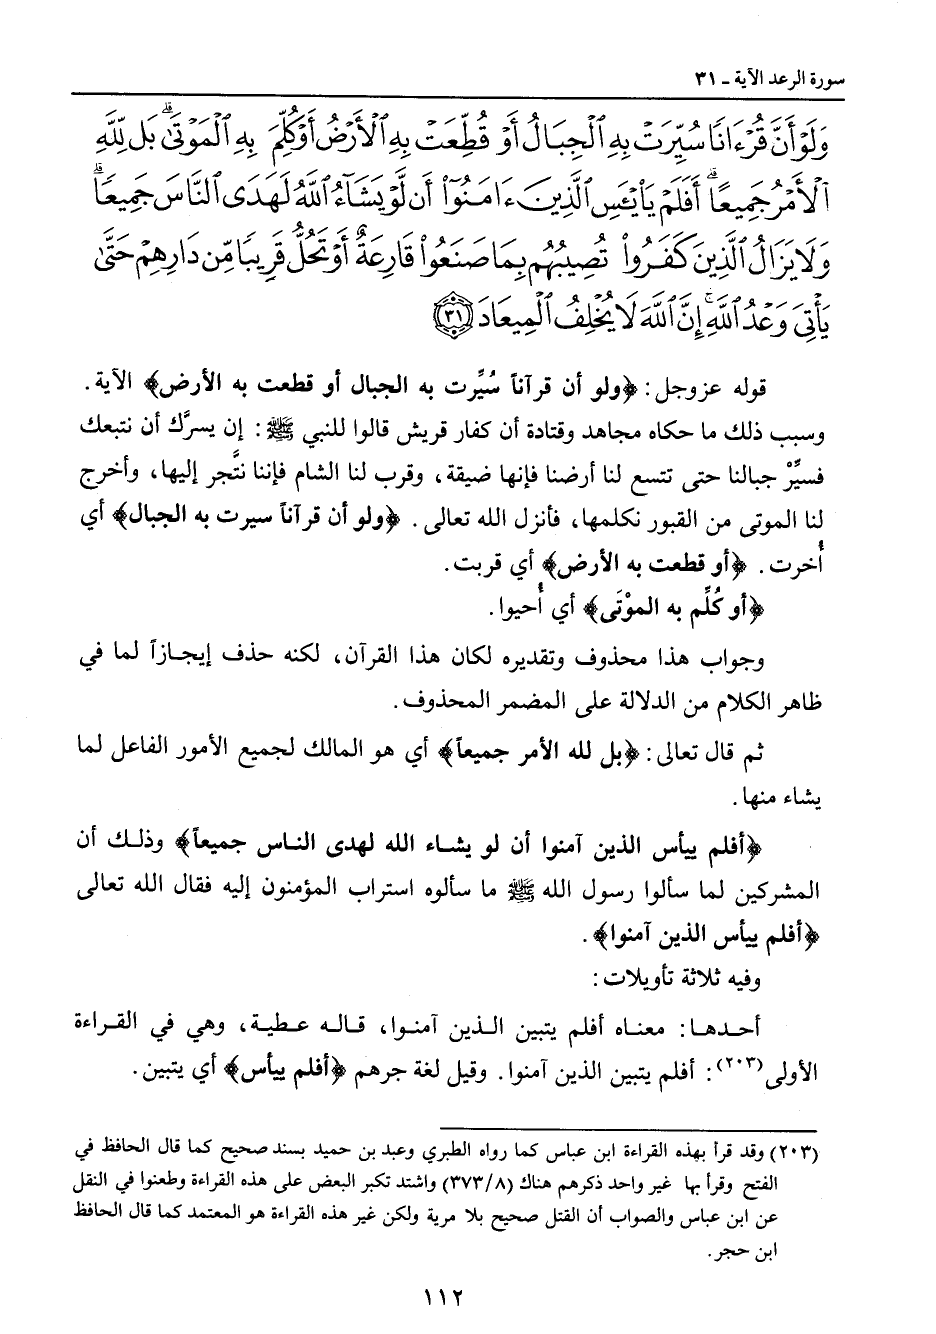 سورة الرعد الآية ـ ٣١
وَلَوْ أَنَّ قُرْءَانًا سُيِّرَتْ بِهِ ٱلْجِبَالُ أَوْ قُطِّعَتْ بِهِ ٱلْأَرْضُ أَوْ كُلِّمَ بِهِ ٱلْمَوْتَىٰ ۗ بَل لِّلَّهِ
ٱلْأَمْرُ جَمِيعًا ۗ أَفَلَمْ يَا۟يْـَٔسِ ٱلَّذِينَ ءَامَنُوٓا۟ أَن لَّوْ يَشَآءُ ٱللَّهُ لَهَدَى ٱلنَّاسَ جَمِيعًا ۗ
وَلَا يَزَالُ ٱلَّذِينَ كَفَرُوا۟ تُصِيبُهُم بِمَا صَنَعُوا۟ قَارِعَةٌ أَوْ تَحُلُّ قَرِيبًا مِّن دَارِهِمْ حَتَّىٰ
يَأْتِىَ وَعْدُ ٱللَّهِ ۚ إِنَّ ٱللَّهَ لَا يُخْلِفُ ٱلْمِيعَادَ ٣١
قوله عزوجل: ﴿ولو أن قرآناً سُيِّرت به الجبال أو قطعت به الأرض﴾ الآية.
وسبب ذلك ما حكاه مجاهد وقتادة أن كفار قريش قالوا للنبي ﷺ: إن يسرَّك أن نتبعك
فسيِّرْ جبالنا حتى تتسع لنا أرضنا فإنها ضيقة، وقرب لنا الشام فإننا نتَّجر إليها، وأخرج
لنا الموتى من القبور نكلمها، فأنزل الله تعالى. ﴿ولو أن قرآناً سيرت به الجبال﴾ أي
أُخرت. ﴿أو قطعت به الأرض﴾ أي قربت.
﴿أو كُلِّم به الموْتَى﴾ أي أُحيوا.
وجواب هذا محذوف وتقديره لكان هذا القرآن، لكنه حذف إيجازاً لما في
ظاهر الكلام من الدلالة على المضمر المحذوف.
ثم قال تعالى: ﴿بل لله الأمر جميعاً﴾ أي هو المالك لجميع الأمور الفاعل لما
يشاء منها.
﴿أفلم ييأس الذين آمنوا أن لو يشاء الله لهدى الناس جميعاً﴾ وذلك أن
المشركين لما سألوا رسول الله ﷺ ما سألوه استراب المؤمنون إليه فقال الله تعالى
﴿أفلم ييأس الذين آمنوا﴾.
وفيه ثلاثة تأويلات:
أحدها: معناه أفلم يتبين الذين آمنوا، قاله عطية، وهي في القراءة
الأولى(٢٠٣): أفلم يتبين الذين آمنوا. وقيل لغة جرهم ﴿أفلم ييأس﴾ أي يتبين.
(٢٠٣) وقد قرأ بهذه القراءة ابن عباس كما رواه الطبري وعبد بن حميد بسند صحيح كما قال الحافظ في
الفتح وقرأ بها غير واحد ذكرهم هناك (٣٧٣/٨) واشتد تكبر البعض على هذه القراءة وطعنوا في النقل
عن ابن عباس والصواب أن القتل صحيح بلا مرية ولكن غير هذه القراءة هو المعتمد كما قال الحافظ
ابن حجر.
١١٢